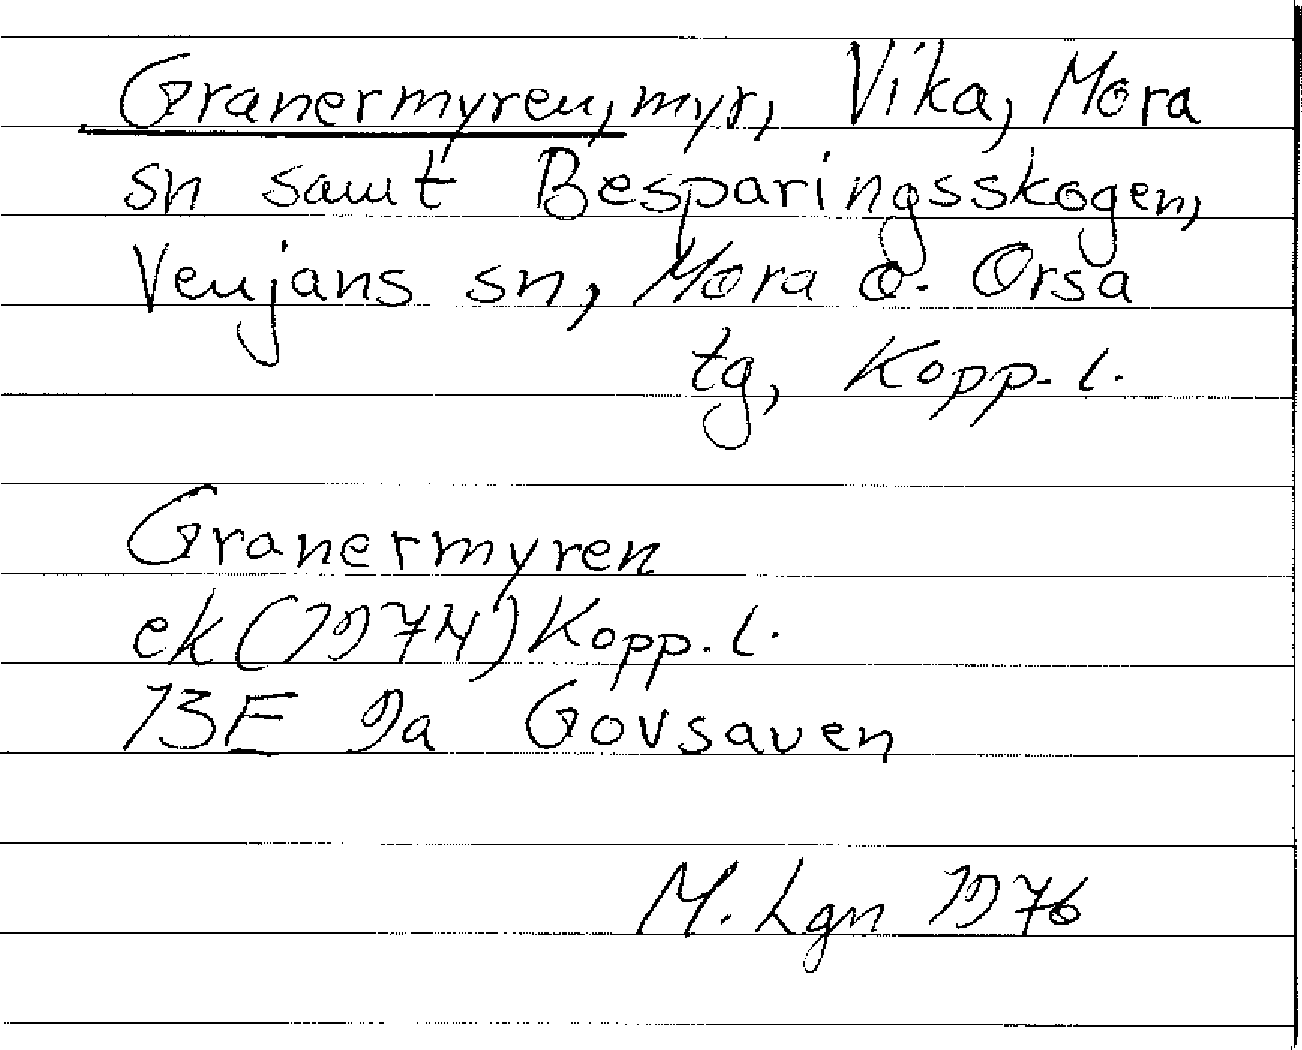 Granermyren, myr, Vika, Mora
sn samt Besparingsskogen,
Venjans sn, Mora o. Orsa
tg, Kopp. l.
Granermyren
ek (1974) Kopp. l.
13E 9a Govsaven
M. Lgn 1976